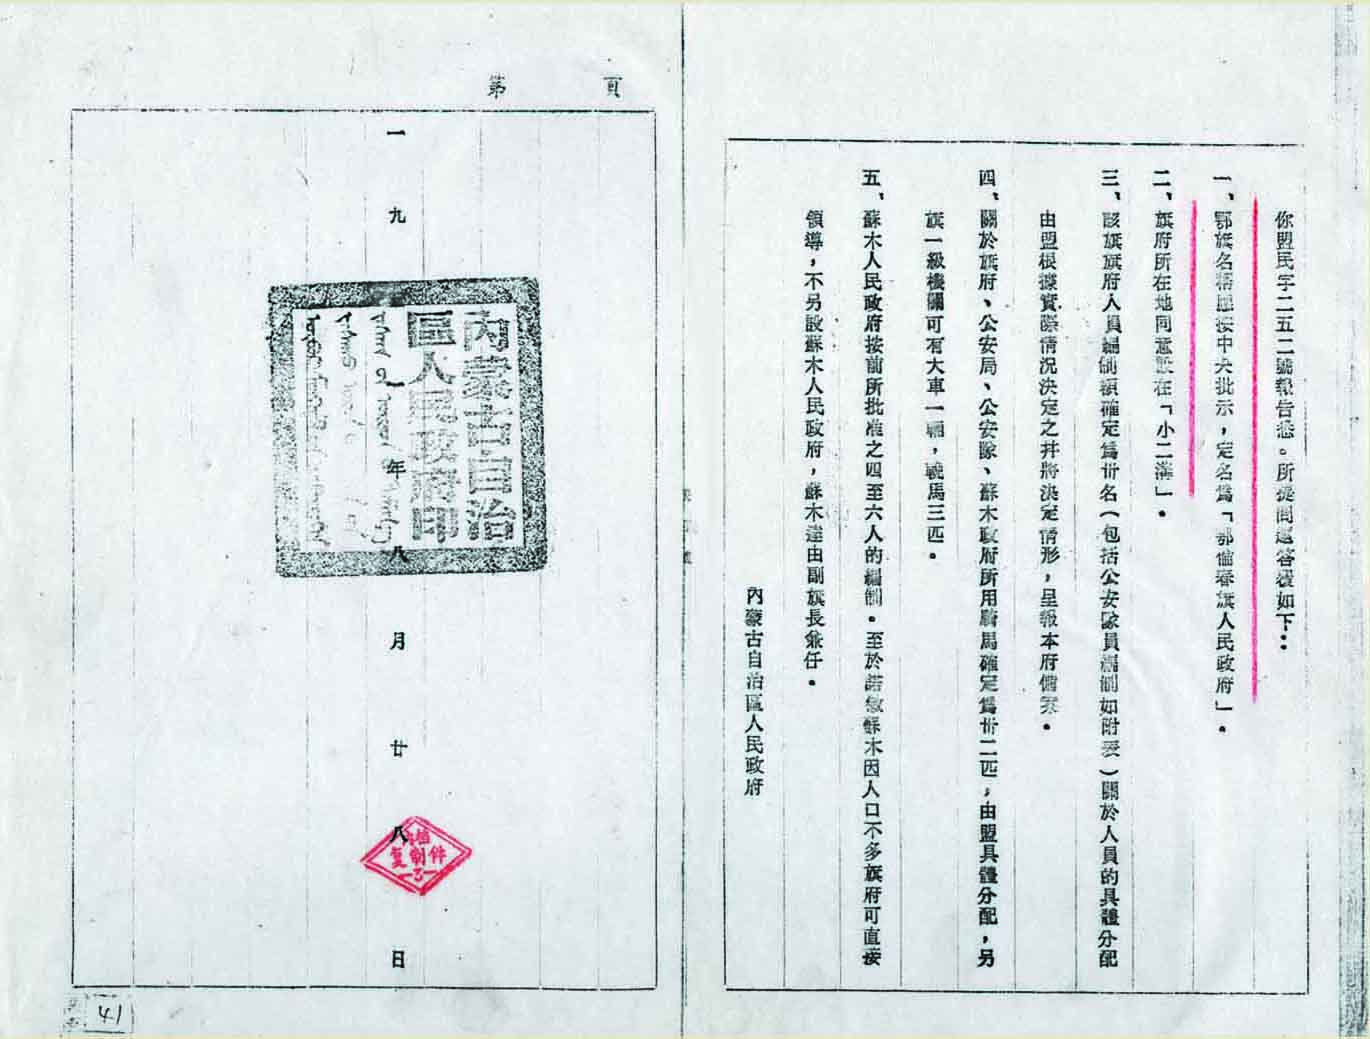 你盟民字二五二號報告悉。所提問題答覆如下：
一、鄂旗名稱應按中央批示，定名爲「鄂倫春旗人民政府」。
二、旗府所在地同意設在「小二溝」。
三、該旗旗府人員編制額確定爲卅名（包括公安隊員編制如附表）關於人員的具體分配
由盟根據實際情況決定之并將決定情形，呈報本府備案。
四、關於旗府、公安局、公安隊、蘇木政府所用騎馬確定爲卅二匹，由盟具體分配，另
旗一級機關可有大車一輛，輓馬三匹。
五、蘇木人民政府按前所批准之四至六人的編制。至於諾敏蘇木因人口不多旗府可直接
領導，不另設蘇木人民政府，蘇木達由副旗長兼任。
內蒙古自治區人民政府
第 頁
一九 一年八月廿八日
內蒙古自治
區人民政府印
复制件
41